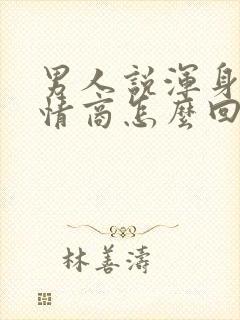 男人説渾身
情商怎麼回
林善濤